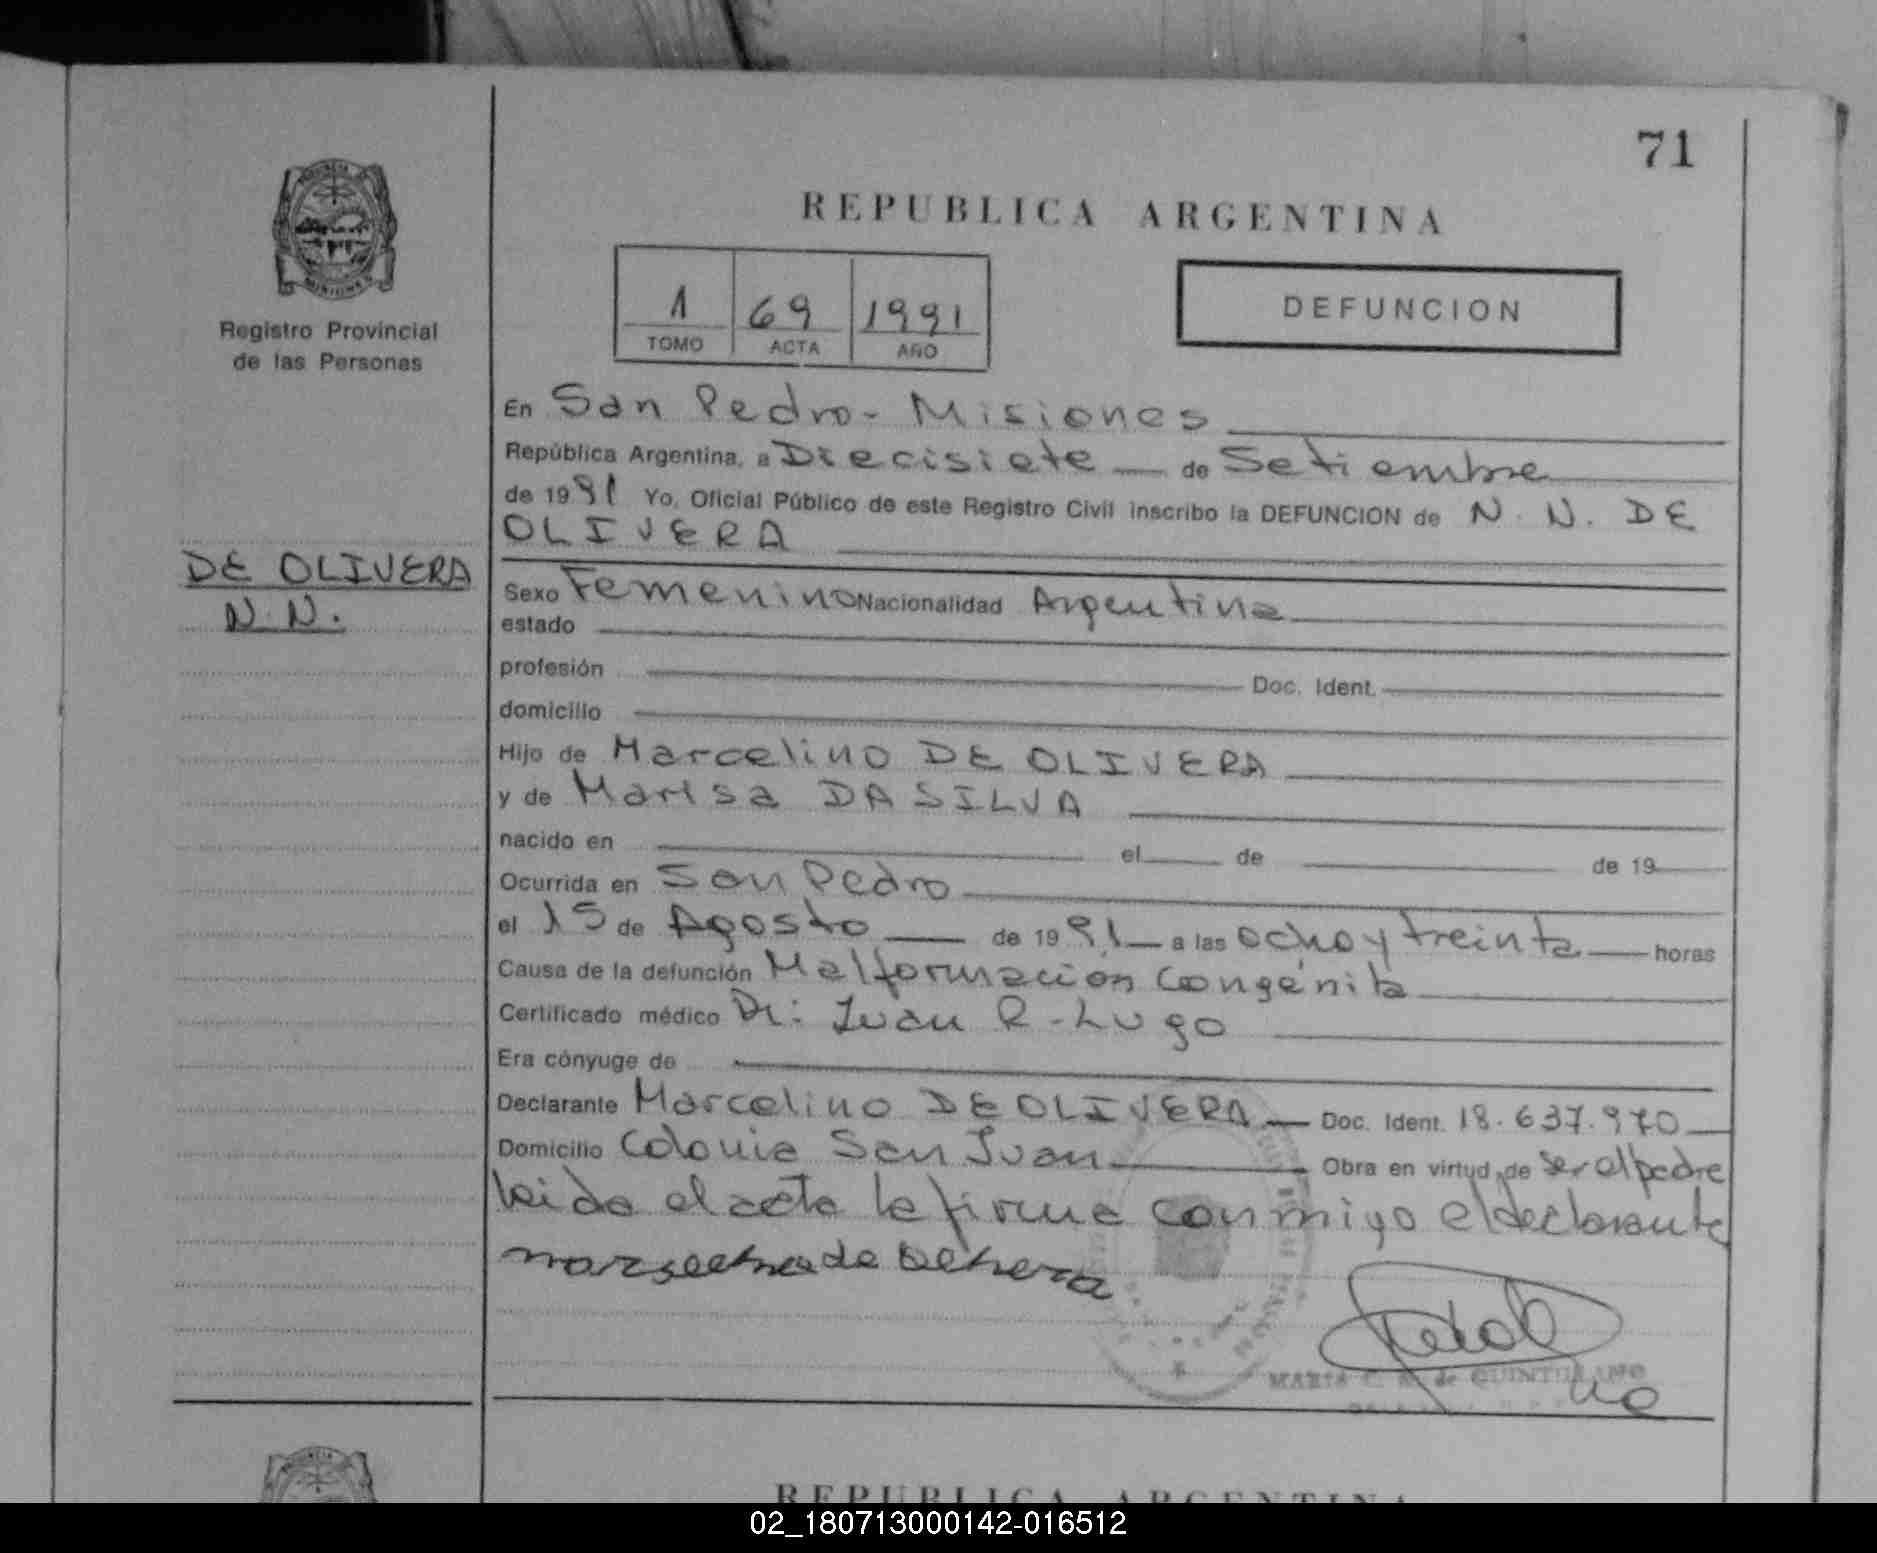 71
REPUBLICA ARGENTINA
Registro Provincial
de las Personas
1 69 1991
TOMO ACTA AÑO
DEFUNCION
En San Pedro - Misiones
República Argentina, a Diecisiete de Setiembre
de 1991 Yo, Oficial Público de este Registro Civil inscribo la DEFUNCION de N. N. DE
OLIVERA
DE OLIVERA
N. N.
Sexo Femenino Nacionalidad Argentina
estado
profesión Doc. Ident.
domicilio
Hijo de Marcelino DE OLIVERA
y de Marisa DA SILVA
nacido en el de de 19
Ocurrida en San Pedro
el 15 de Agosto de 1991 a las ocho y treinta horas
Causa de la defunción Malformación Congénita
Certificado médico Dr: Juan R. Lugo
Era cónyuge de
Declarante Marcelino DE OLIVERA Doc. Ident. 18.637.970
Domicilio Colonia San Juan Obra en virtud de ser el padre
leida el acta la firma conmigo el declarante
MARIA C. de QUINTILLANO
REPUBLICA ARGENTINA
02_180713000142-016512